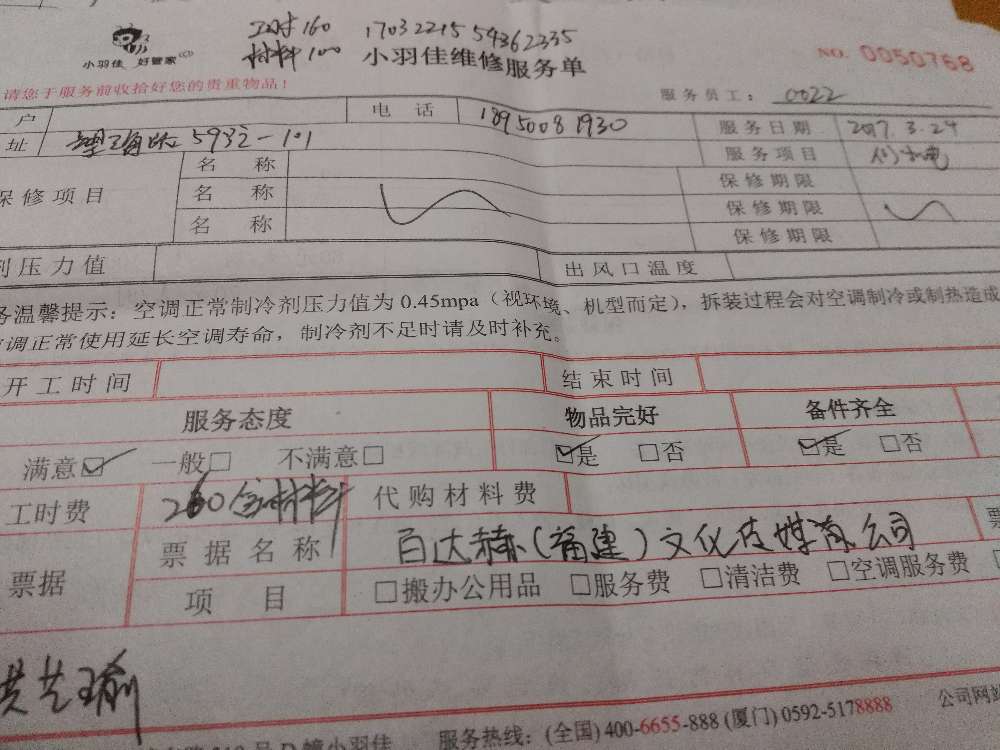 工时160 1703221554362335
材料100
小羽佳 好管家 小羽佳维修服务单 NO. 0050768
请您于服务前收拾好您的贵重物品！ 服务员工： 0022
户 电 话 18950081930 服务日期 2017.3.24
址 593之一101 服务项目
保修项目 名 称 保修期限
名 称 保修期限
名 称 保修期限
剂压力值 出风口温度
务温馨提示：空调正常制冷剂压力值为 0.45mpa（视环境、机型而定），拆装过程会对空调制冷或制热造成
调正常使用延长空调寿命，制冷剂不足时请及时补充。
开工时间 结束时间
服务态度 物品完好 备件齐全
满意☑ 一般□ 不满意□ ☑是 □否 ☑是 □否
工时费 260含材料 代购材料费
票据 票据名称 百达赫（福建）文化传媒有限公司 票
项 目 □搬办公用品 □服务费 □清洁费 □空调服务费
服务热线：(全国) 400-6655-888 (厦门) 0592-5178888 公司网站